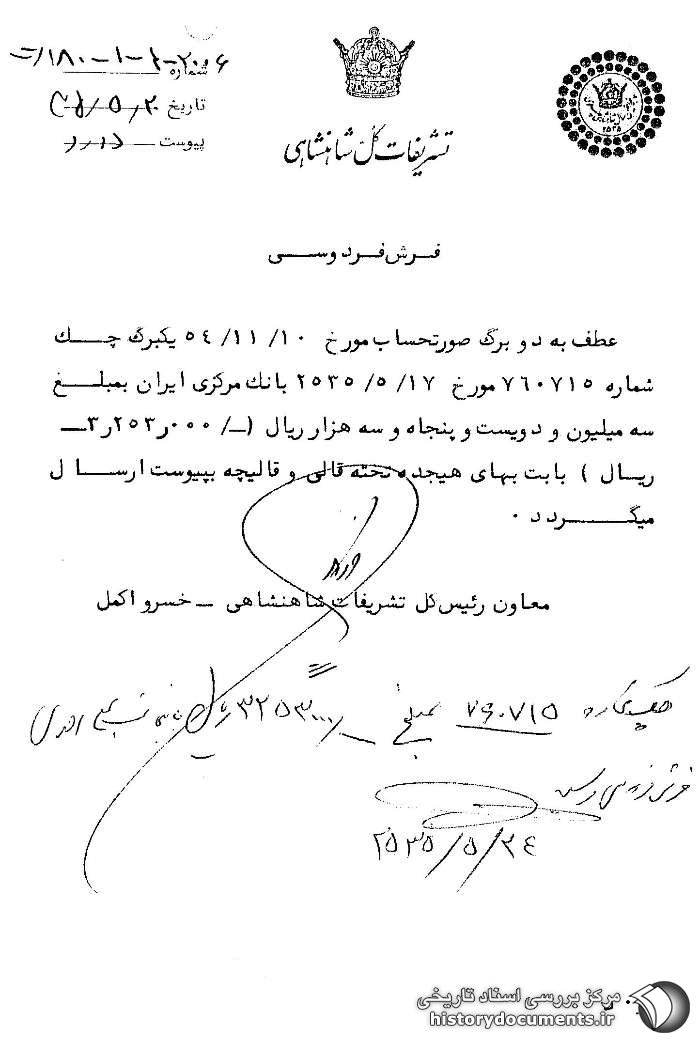 شماره
تاریخ
پیوست
تشریفات کل شاهنشاهی
۲۵۳۵
فرش فردوسی
عطف به دو برگ صورتحساب مورخ ۵۴/۱۱/۱۰ یکبرگ چک
شماره ۷۶۰۷۱۵ مورخ ۲۵۳۵/۵/۱۷ بانک مرکزی ایران بمبلغ
سه میلیون و دویست و پنجاه و سه هزار ریال (ـ/۳ر۲۵۳ر۰۰۰ـ
ریال ) بابت بهای هیجده تخته قالی و قالیچه بپیوست ارسال
میگردد .
معاون رئیس کل تشریفات شاهنشاهی ـ خسرو اکمل
چک شماره ۷۶۰۷۱۵ مبلغ ۳۲۵۳۰۰۰/ ریال
فرش فردوسی رسید
۲۵۳۵/۵/۲۴
مرکز بررسی اسناد تاریخی
historydocuments.ir